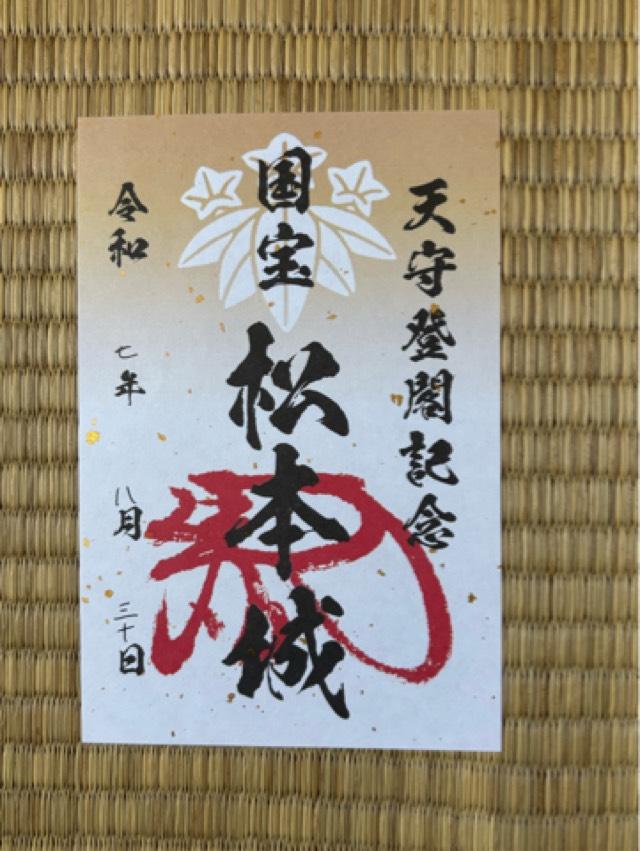 天守登閣記念
国宝 松本城
令和 七年 八月 三十日